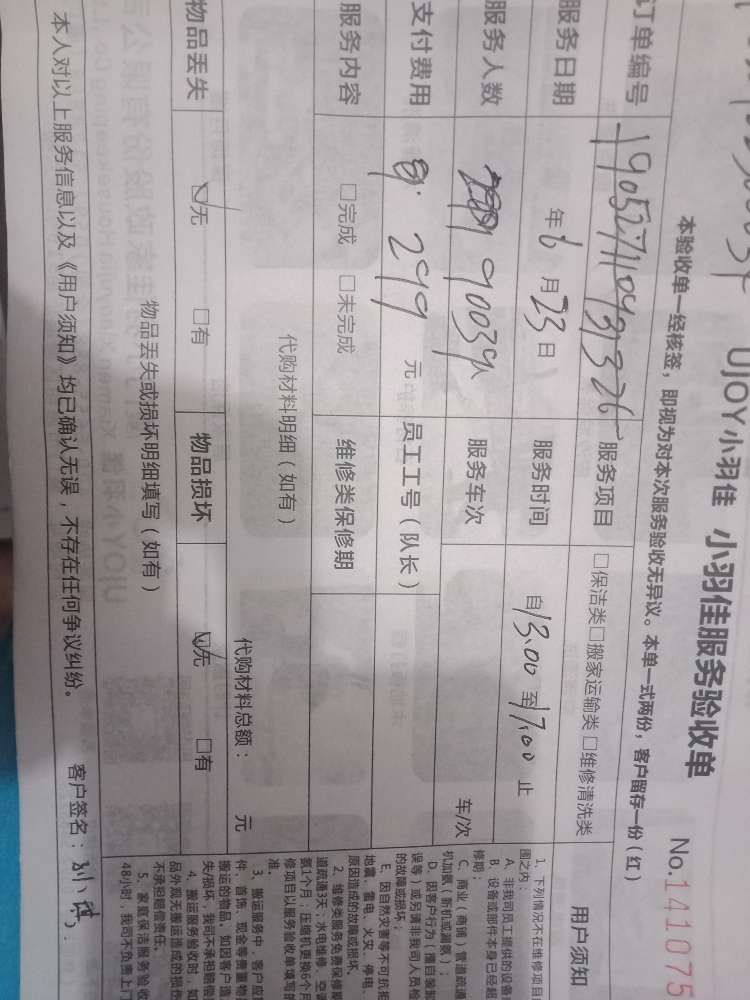 UJOY小羽佳 小羽佳服务验收单
No.141075
本验收单一经核签，即视为对本次服务验收无异议。本单一式两份，客户留存一份（红）
订单编号 服务项目 □保洁类□搬家运输类 □维修清洗类
服务日期 年6月23日 服务时间 自13:00 至17:00 止
服务人数 服务车次 车/次
支付费用 299 元 员工工号（队长）
服务内容 □完成 □未完成 维修类保修期
代购材料明细（如有） 代购材料总额： 元
物品丢失 ☑无 □有 物品损坏 ☑无 □有
物品丢失或损坏明细填写（如有）
本人对以上服务信息以及《用户须知》均已确认无误，不存在任何争议纠纷。 客户签名：
用户须知
1、下列情况不在维修项目
围之内：
A、非我司员工提供的设备
B、设备或部件本身已经超
修期；
C、商业（商铺）管道疏通
机加氨（新机或漏氨）；
D、因客户行为（擅自装卸
误等）或另请非我司人员检
的故障或损坏；
E、因自然灾害等不可抗拒
地震、雷电、火灾、停电、
原因造成的故障或损坏。
2、维修类服务免费保修期
道疏通3天；水电维修、空调
氨1个月；压缩机更换6个月
修项目以服务验收单填写的
准。
3、搬运服务中，客户应
件、首饰、现金等贵重物品
搬运的物品。如因客户造
失/损坏，我司不承担赔偿
4、搬运服务验收时，如
品外观无搬运造成的损伤
不承担赔偿责任。
5、家庭保洁服务验收
48小时，我司不负责上门